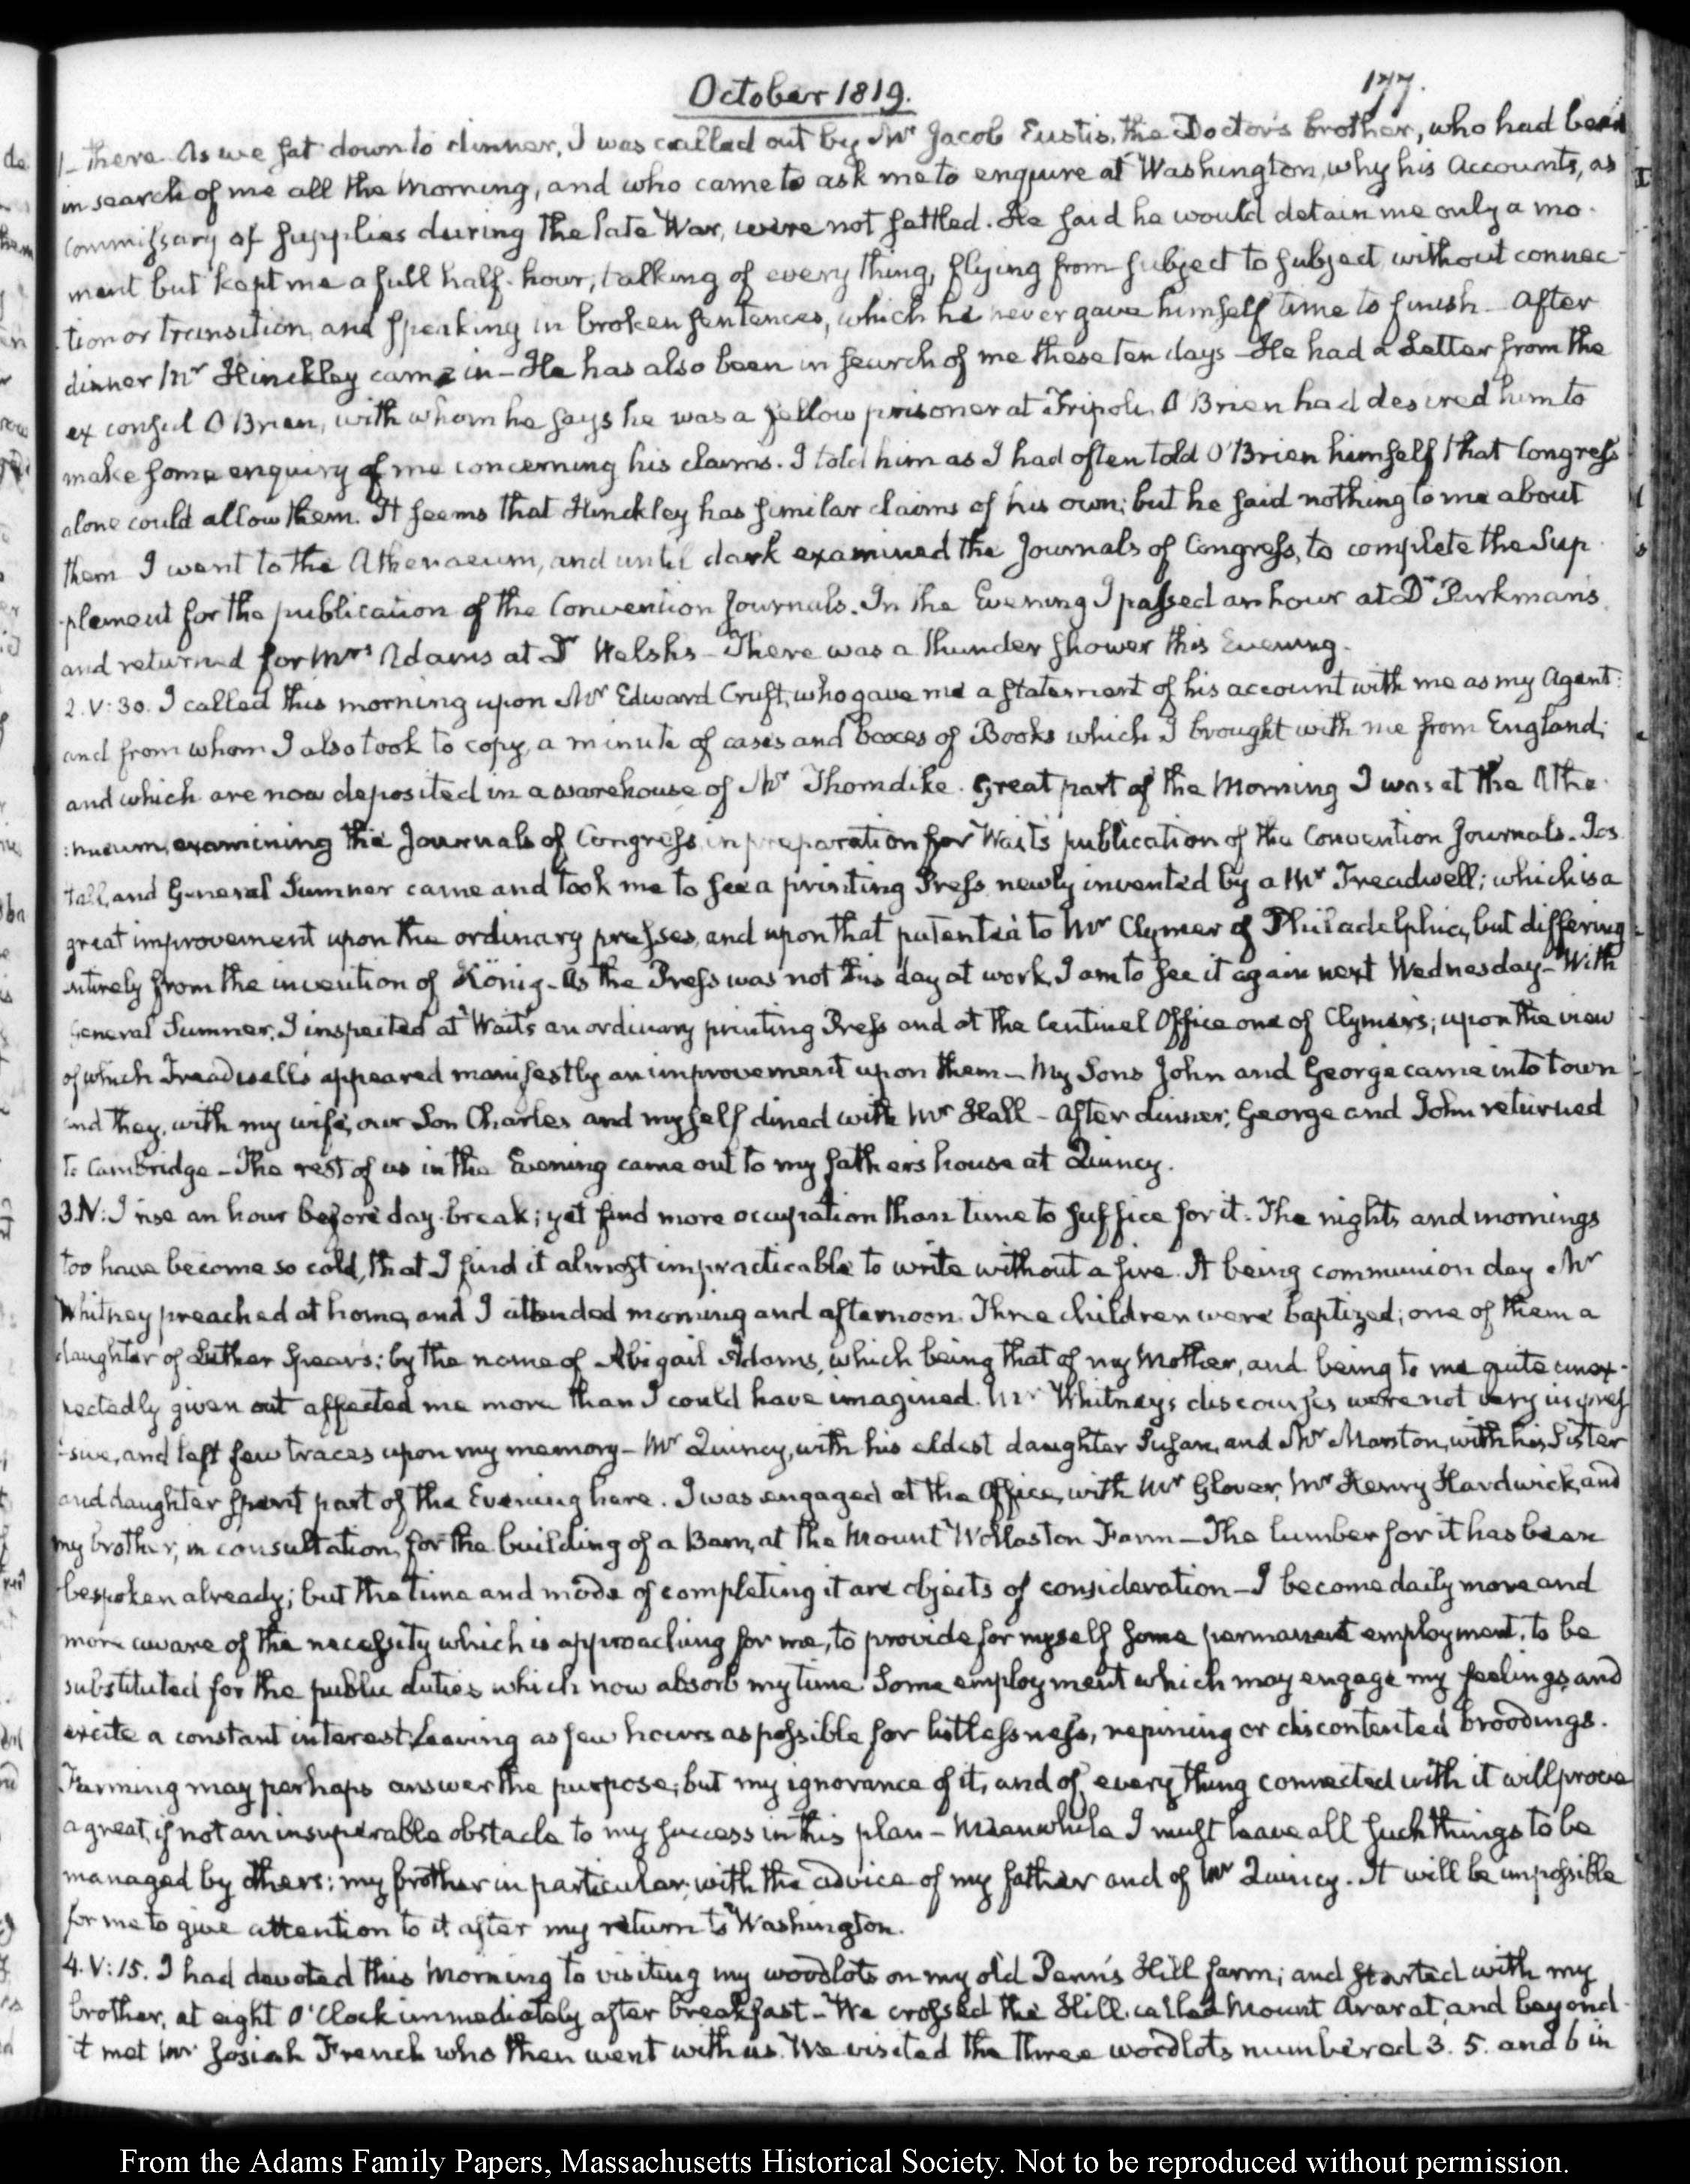 October 1819.
177.
1_ there. As we sat down to dinner, I was called out by Mr Jacob Eustis, the Doctor's brother, who had been
in search of me all the Morning, and who came to ask me to enquire at Washington, why his Accounts, as
Commissary of supplies during the late War, were not settled. He said he would detain me only a mo-
ment but kept me a full half-hour, talking of every thing, flying from subject to subject without connec-
tion or transition, and speaking in broken sentences, which he never gave himself time to finish_ After
dinner Mr Hinckley came in_ He has also been in search of me these ten days_ He had a Letter from the
ex consul O Brien, with whom he says he was a fellow prisoner at Tripoli. O Brien had desired him to
make some enquiry of me concerning his claims. I told him as I had often told O'Brien himself that Congress
alone could allow them. It seems that Hinckley has similar claims of his own; but he said nothing to me about
them I went to the Athenaeum, and until dark examined the Journals of Congress, to complete the Sup-
plement for the publication of the Convention Journals. In the Evening I passed an hour at Dr Parkman's,
and returned for Mrs Adams at Dr Welsh's_ There was a thunder shower this Evening.
2. V:30. I called this morning upon Mr Edward Cruft, who gave me a statement of his account with me as my Agent:
and from whom I also took to copy, a minute of cases and boxes of Books which I brought with me from England;
and which are now deposited in a warehouse of Mr Thorndike. Great part of the Morning I was at the Athe-
:naeum, examining the Journals of Congress, in preparation for Wait's publication of the Convention Journals. Jos
tall, and General Sumner came and took me to see a printing Press, newly invented by a Mr Treadwell; which is a
great improvement upon the ordinary presses, and upon that patented to Mr Clymer of Philadelphia, but differing
entirely from the invention of König_ As the Press was not this day at work, I am to see it again next Wednesday_ With
General Sumner, I inspected at Wait's an ordinary printing Press and at the Centinel Office one of Clymer's; upon the view
of which Treadwell's appeared manifestly an improvement upon them_ My Sons John and George came into town
and they, with my wife, our Son Charles and myself dined with Mr Hall_ After dinner, George and John returned
to Cambridge_ The rest of us in the Evening came out to my father's house at Quincy.
3. IV: I rise an hour before day-break; yet find more occupation than time to suffice for it. The nights and mornings
too have become so cold, that I find it almost impracticable to write without a fire. It being communion day Mr
Whitney preached at home, and I attended morning and afternoon. Three children were baptized; one of them a
daughter of Luther Spear's; by the name of Abigail Adams, which being that of my Mother, and being to me quite unex-
pectedly given out affected me more than I could have imagined. Mr Whitney's discourses were not very impres
:sive, and left few traces upon my memory_ Mr Quincy, with his eldest daughter Susan, and Mr Marston, with his Sister
and daughter spent part of the Evening here. I was engaged at the Office, with Mr Glover, Mr Henry Hardwick, and
my brother, in consultation, for the building of a Barn, at the Mount Wollaston Farm_ The lumber for it has been
bespoken already; but the time and mode of completing it are objects of consideration_ I become daily more and
more aware of the necessity which is approaching for me, to provide for myself some permanent employment, to be
substituted for the public duties which now absorb my time. Some employment which may engage my feelings, and
excite a constant interest, leaving as few hours as possible for listlessness, repining or discontented broodings.
Farming may perhaps answer the purpose; but my ignorance of it, and of every thing connected with it will prove
a great, if not an insuperable obstacle to my success in this plan_ Meanwhile I must leave all such things to be
managed by others; my brother in particular; with the advice of my father and of Mr Quincy. It will be impossible
for me to give attention to it after my return to Washington.
4. V:15. I had devoted this Morning to visiting my woodlots on my old Penn's Hill farm; and started with my
brother, at eight O'Clock immediately after breakfast_ We crossed the Hill called Mount Ararat, and beyond
it met Mr Josiah French who then went with us. We visited the three woodlots numbered 3. 5. and 6 in
From the Adams Family Papers, Massachusetts Historical Society. Not to be reproduced without permission.